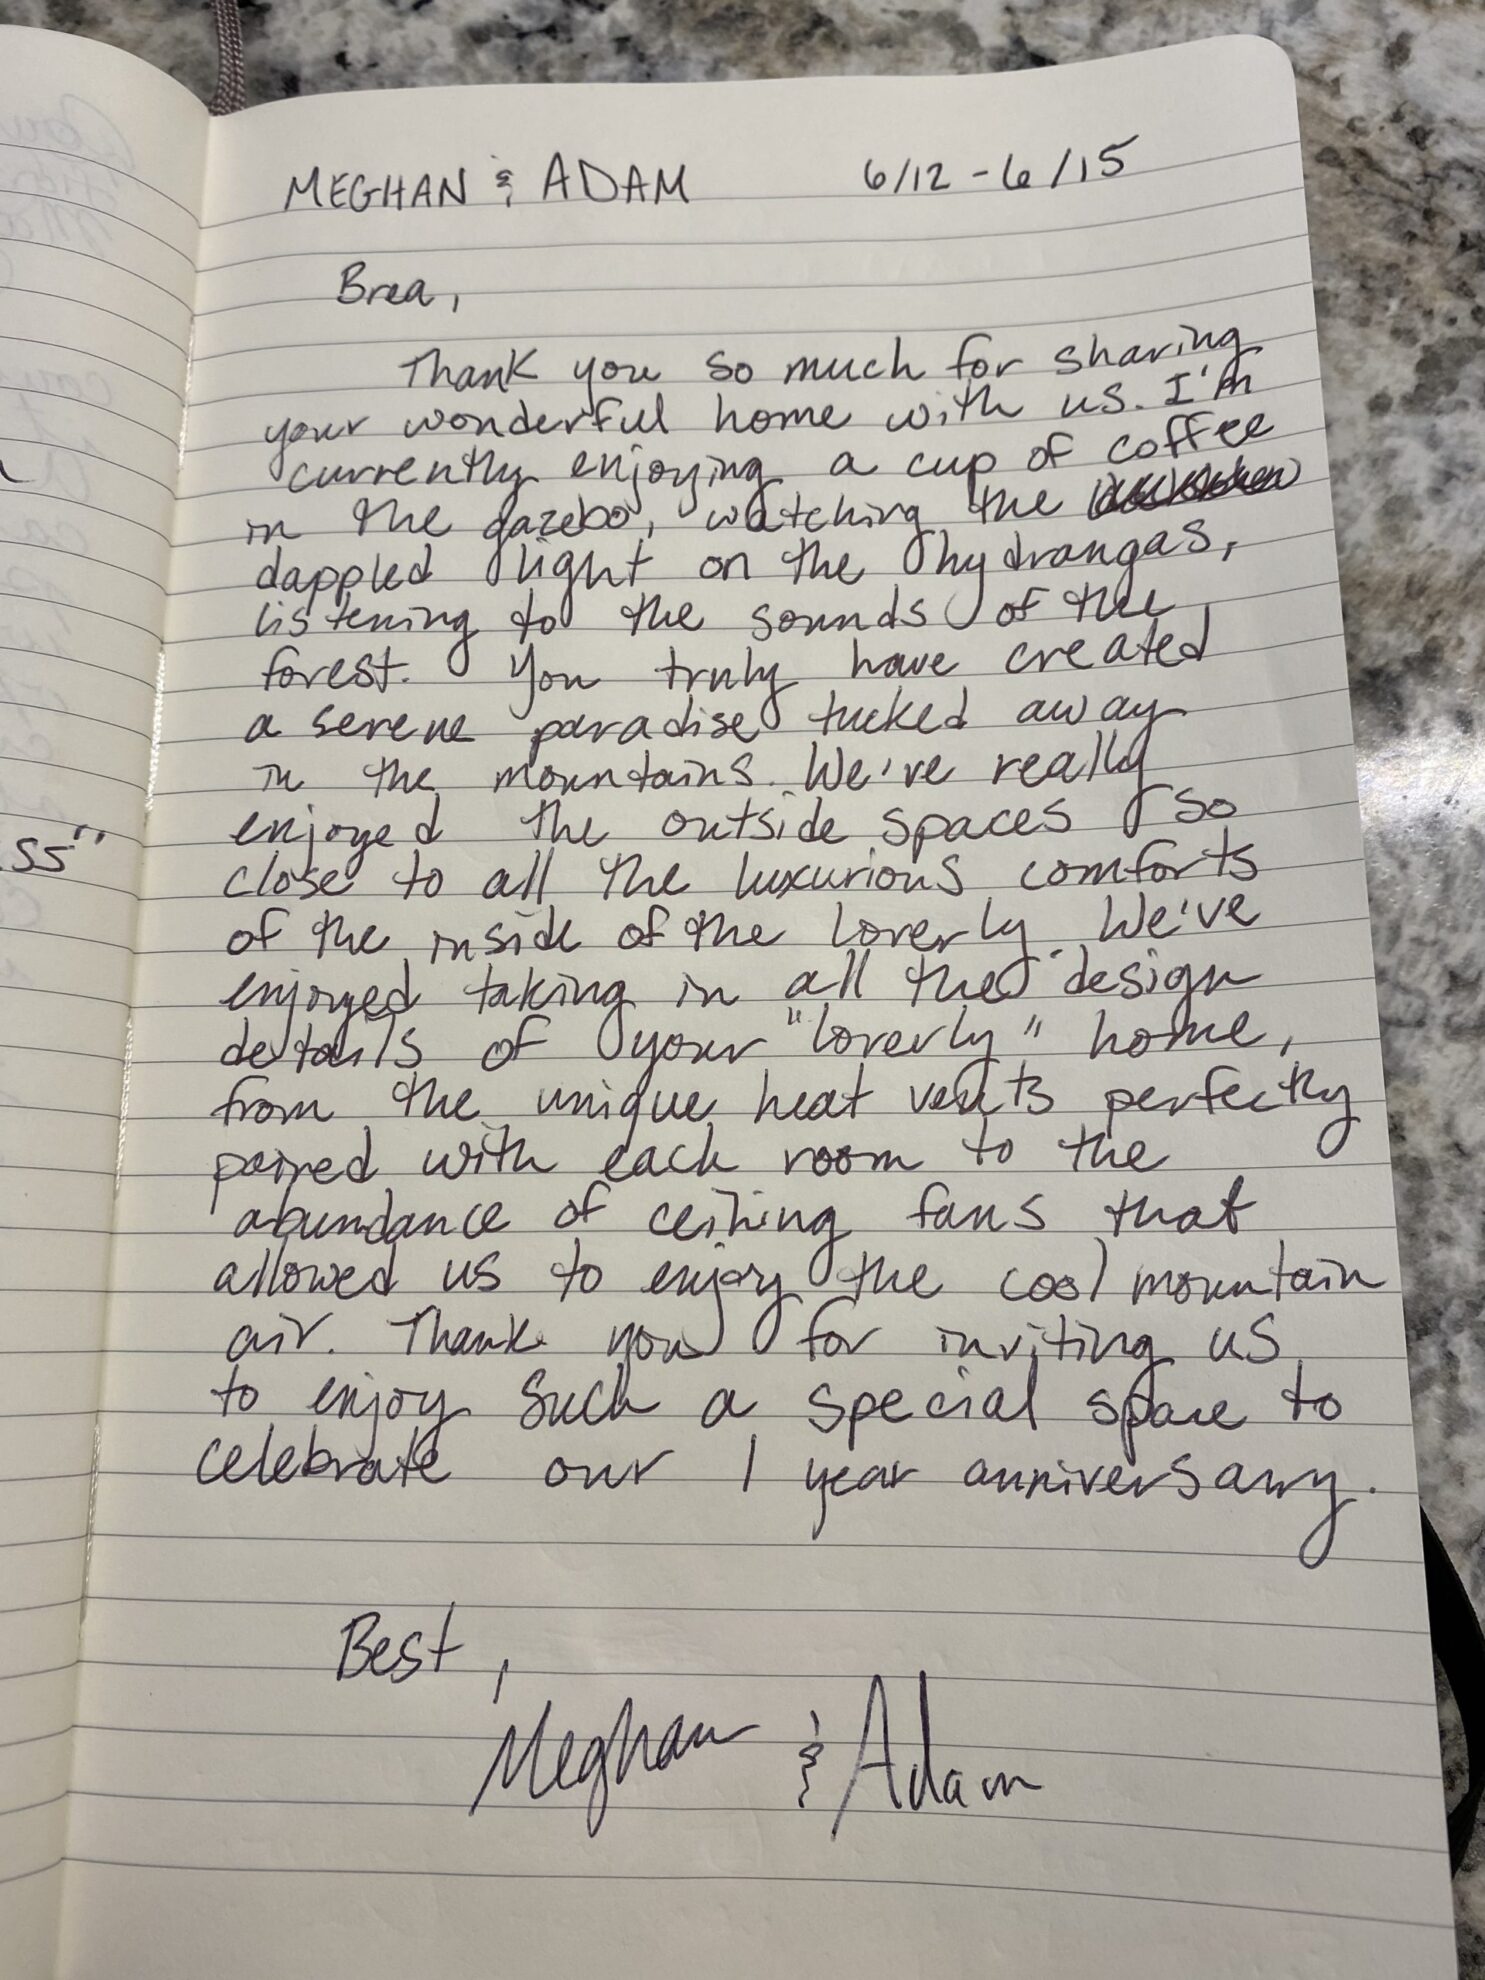 MEGHAN & ADAM 6/12 - 6/15
Brea,
Thank you so much for sharing
your wonderful home with us. I'm
currently enjoying a cup of coffee
in the gazebo, watching the
dappled light on the hydrangas,
listening to the sounds of the
forest. You truly have created
a serene paradise tucked away
in the mountains. We've really
enjoyed the outside spaces so
close to all the luxurious comforts
of the inside of the loverly. We've
enjoyed taking in all the design
details of your "loverly" home,
from the unique heat vents perfectly
paired with each room to the
abundance of ceiling fans that
allowed us to enjoy the cool mountain
air. Thank you for inviting us
to enjoy such a special space to
celebrate our 1 year anniversary.
Best,
Meghan & Adam
ss"